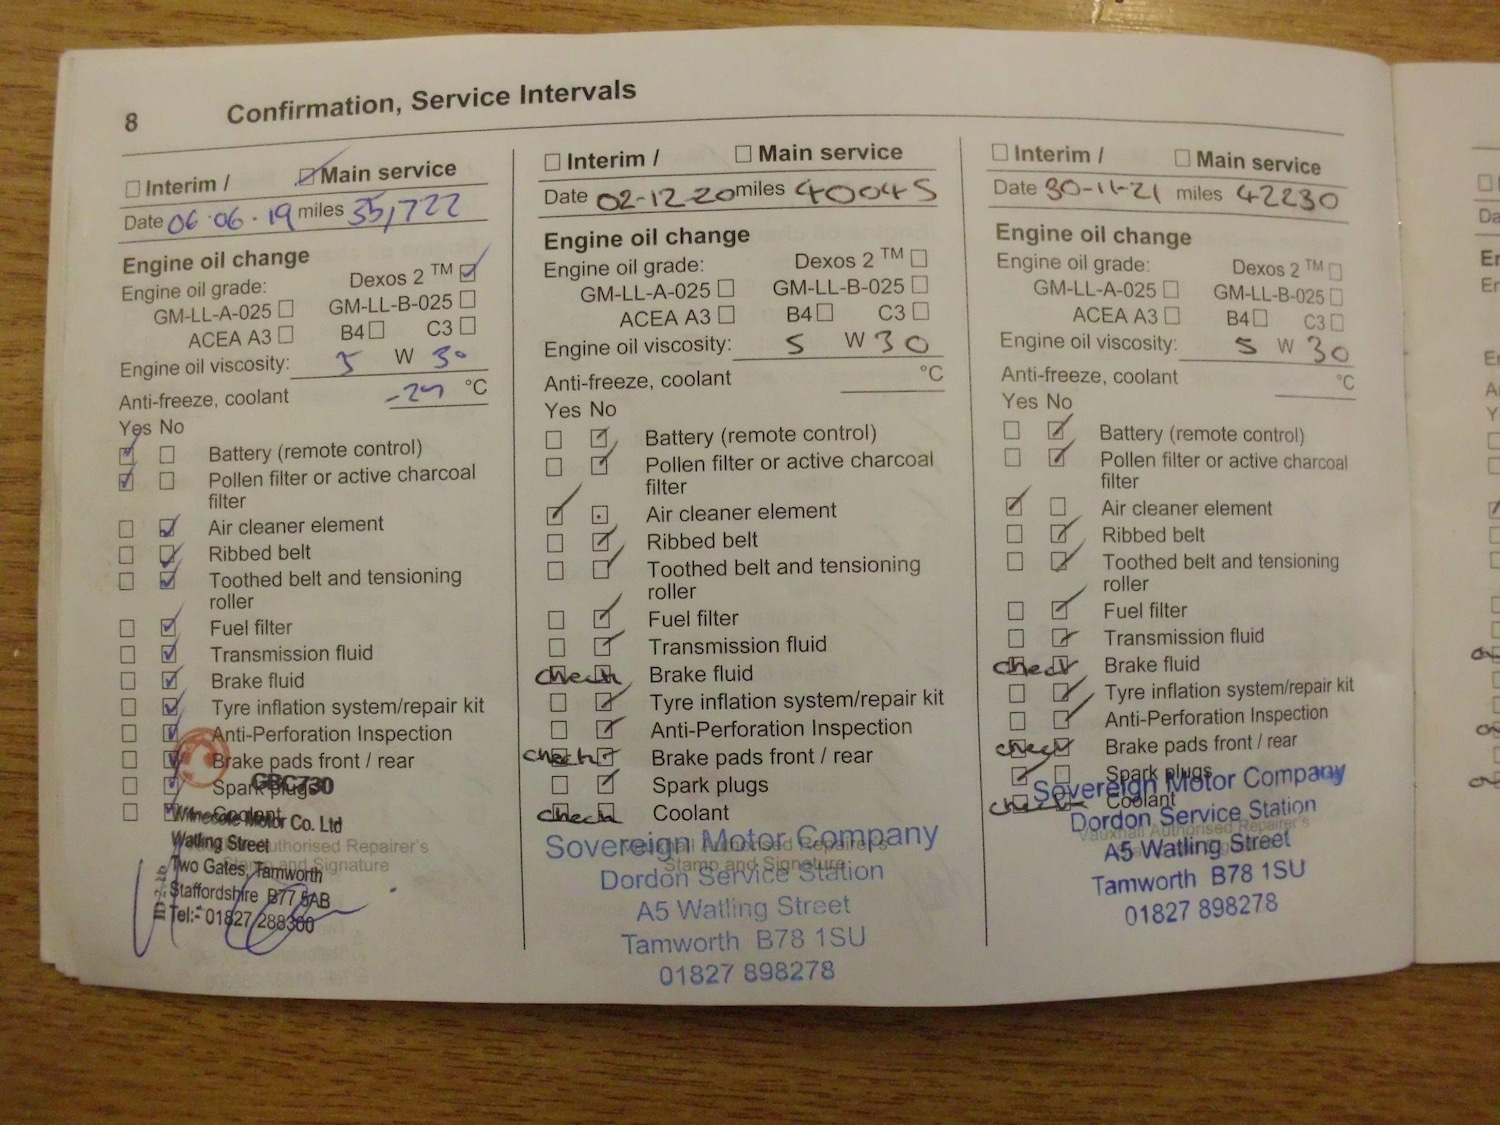 8 Confirmation, Service Intervals
Interim / Main service
Date 06·06·19 miles 35,722
Engine oil change
Engine oil grade: Dexos 2 TM
GM-LL-A-025 GM-LL-B-025
ACEA A3 B4 C3
Engine oil viscosity: 5 W 30
Anti-freeze, coolant °C
Yes No
Battery (remote control)
Pollen filter or active charcoal
filter
Air cleaner element
Ribbed belt
Toothed belt and tensioning
roller
Fuel filter
Transmission fluid
Brake fluid
Tyre inflation system/repair kit
Anti-Perforation Inspection
Brake pads front / rear
Spark plugs
GBC730
Coolant
Motor Co. Ltd
Watling Street
Authorised Repairer's
Stamp and Signature
Two Gates, Tamworth
Staffordshire B77 5AB
Tel:- 01827 288300
Interim / Main service
Date 02-12-20 miles 40045
Engine oil change
Engine oil grade: Dexos 2 TM
GM-LL-A-025 GM-LL-B-025
ACEA A3 B4 C3
Engine oil viscosity: 5 W 30
Anti-freeze, coolant °C
Yes No
Battery (remote control)
Pollen filter or active charcoal
filter
Air cleaner element
Ribbed belt
Toothed belt and tensioning
roller
Fuel filter
Transmission fluid
check Brake fluid
Tyre inflation system/repair kit
Anti-Perforation Inspection
check Brake pads front / rear
Spark plugs
check Coolant
Sovereign Motor Company
Vauxhall Authorised Repairer's
Stamp and Signature
Dordon Service Station
A5 Watling Street
Tamworth B78 1SU
01827 898278
Interim / Main service
Date 30-11-21 miles 42230
Engine oil change
Engine oil grade: Dexos 2 TM
GM-LL-A-025 GM-LL-B-025
ACEA A3 B4 C3
Engine oil viscosity: 5 W 30
Anti-freeze, coolant °C
Yes No
Battery (remote control)
Pollen filter or active charcoal
filter
Air cleaner element
Ribbed belt
Toothed belt and tensioning
roller
Fuel filter
Transmission fluid
check Brake fluid
Tyre inflation system/repair kit
Anti-Perforation Inspection
check Brake pads front / rear
Spark plugs
Sovereign Motor Company
check Coolant
Dordon Service Station
Vauxhall Authorised Repairer's
A5 Watling Street
Tamworth B78 1SU
01827 898278